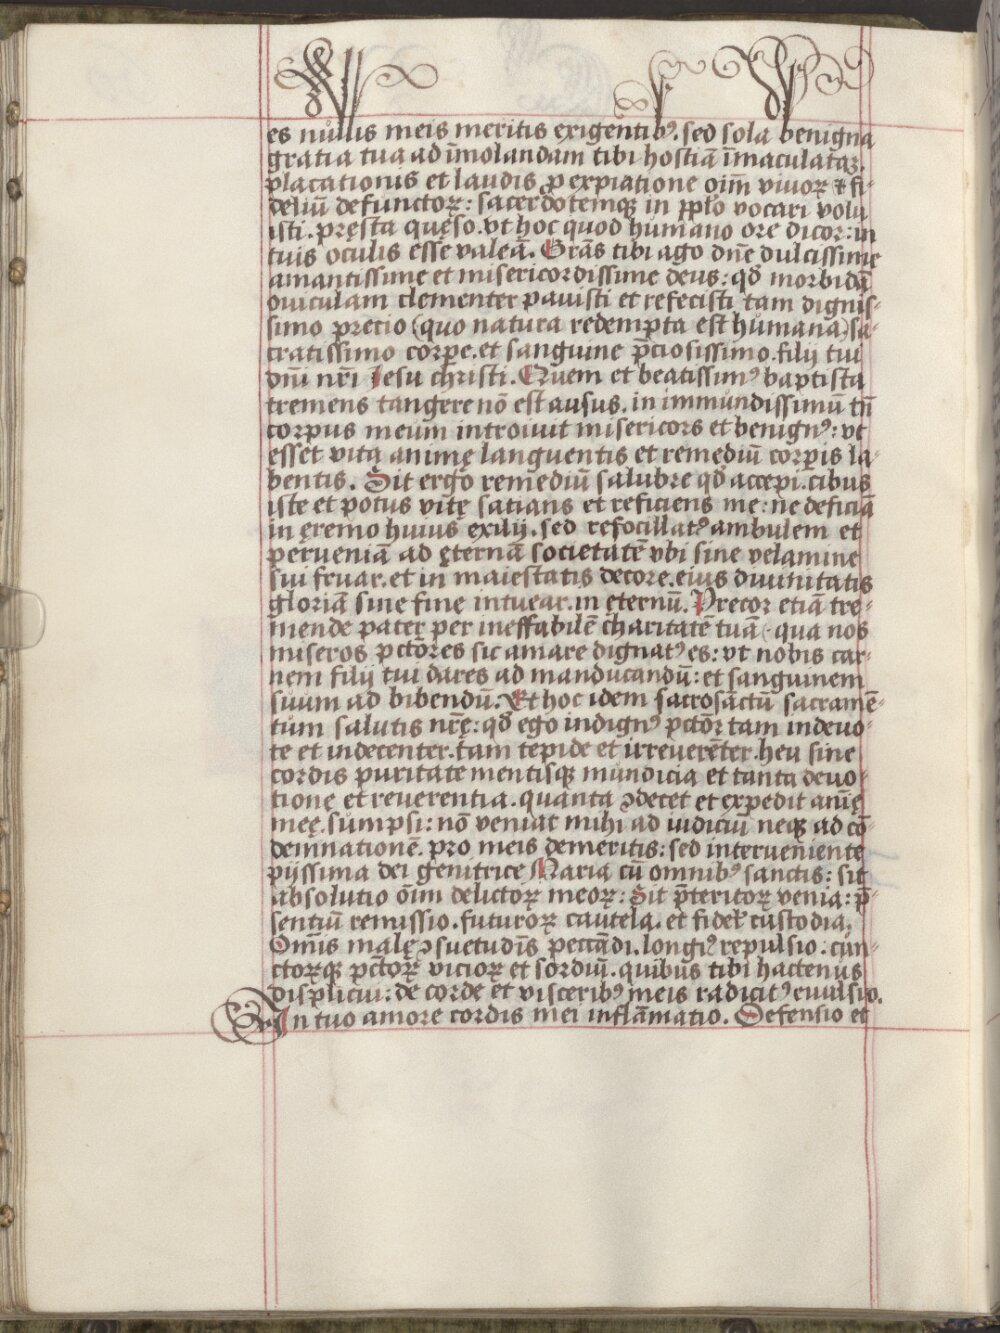 es nullis meis meritis exigentibꝰ. sed sola benigna
gratia tua ad īmolandam tibi hostiā īmaculataꝫ.
placationis et laudis ꝓ expiatione oīm viuoꝝ ⁊ fi-
deliū defunctoꝝ: sacerdotemqꝫ in pplo vocari volu
isti. pręsta quęso. vt hoc quod humano ore dicor: in
tuis oculis esse valeā. Grās tibi ago dn̄e dulcissime
amantissime et misericordissime deus: qd̄ morbidā
ouiculam clementer pauisti et refecisti tam dignis-
simo pretio (quo natura redempta est humana) sa-
cratissimo corpe. et sanguine p̄ciosissimo. filij tui
dn̄i nr̄i Iesu christi. Quem et beatissimꝰ baptista
tremens tangere nō est ausus. in immundissimū tn̄
corpus meum introiuit misericors et benignꝰ: vt
esset vita animę languentis et remediū corpis la-
bentis. Sit ergo remediū salubre qd̄ accepi. cibus
iste et potus vitę satians et reficiens me: ne deficiā
in ęremo huius exilij. sed refocillatꝰ ambulem et
perueniā ad ęternā societatē vbi sine velamine
sui fruar. et in maiestatis decore. eius diuinitatis
gloriā sine fine intuear. in ęternū. Precor etiā tre-
mende pater per ineffabilē charitatē tuā (qua nos
miseros pctōres sic amare dignatꝰ es: vt nobis car-
nem filij tui dares ad manducandū: et sanguinem
suum ad bibendū. Et hoc idem sacrosāctū sacramē-
tum salutis nr̄ę: qd̄ ego indignꝰ pctōr tam indeuo-
te et indecenter. tam tepide et irreuerēter. heu sine
cordis puritate mentisqꝫ mundicia et tanta deuo-
tione et reuerentia. quanta ꝯdecet et expedit aīmę
meę. sumpsi: nō veniat mihi ad iudiciū neqꝫ ad cō-
demnationē. pro meis demeritis: sed interueniente
pijssima dei genitrice Maria cū omnibꝰ sanctis: sit
absolutio oīm delictoꝝ meoꝝ: Sit p̄teritoꝝ venia: p̄-
sentiū remissio. futuroꝝ cautela. et fidel' custodia.
Omīs malę ꝯsuetudīs peccādi. longiꝰ repulsio: cun-
ctoꝝqꝫ pctōꝝ vicioꝝ et sordiū. quibus tibi hactenus
displicui: de corde et visceribꝰ meis radicitꝰ euulsio.
In tuo amore cordis mei inflāmatio. Defensio et